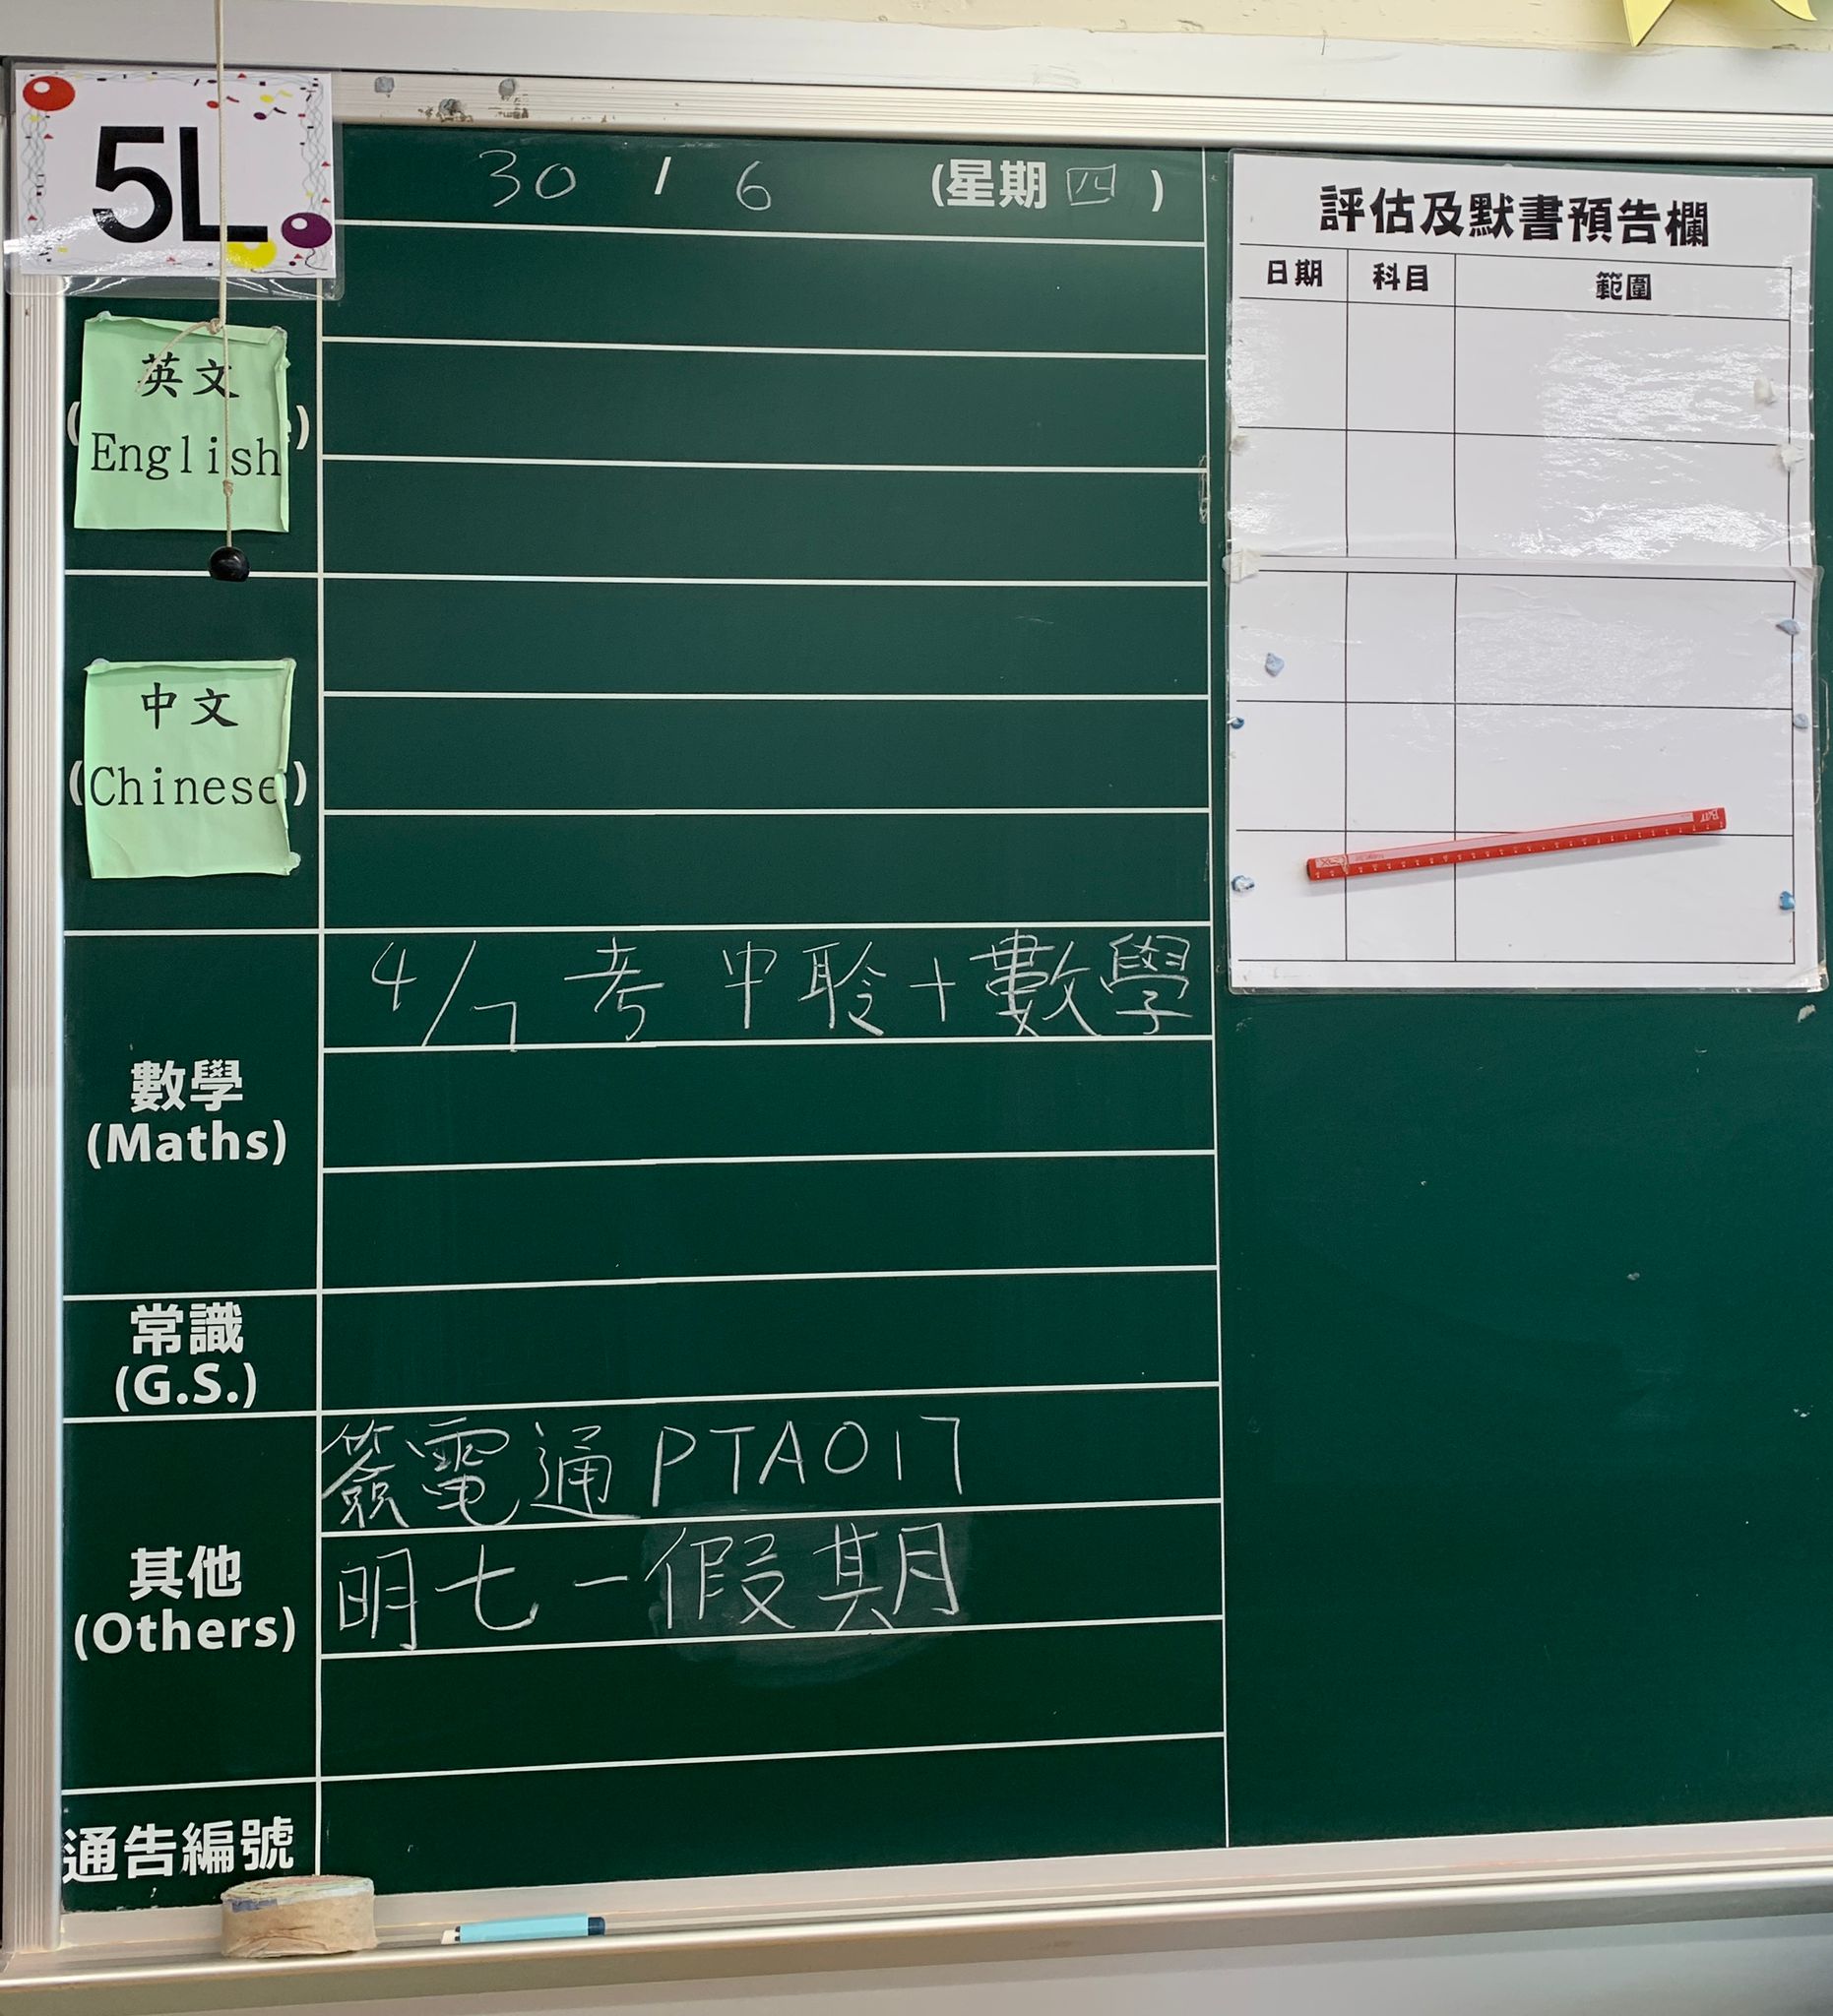 5L
30 / 6 (星期四)
評估及默書預告欄
日期 科目 範圍
英文
(English)
中文
(Chinese)
4/7 考 中聆+數學
數學
(Maths)
常識
(G.S.)
簽電通 PTA017
明七一假期
其他
(Others)
通告編號